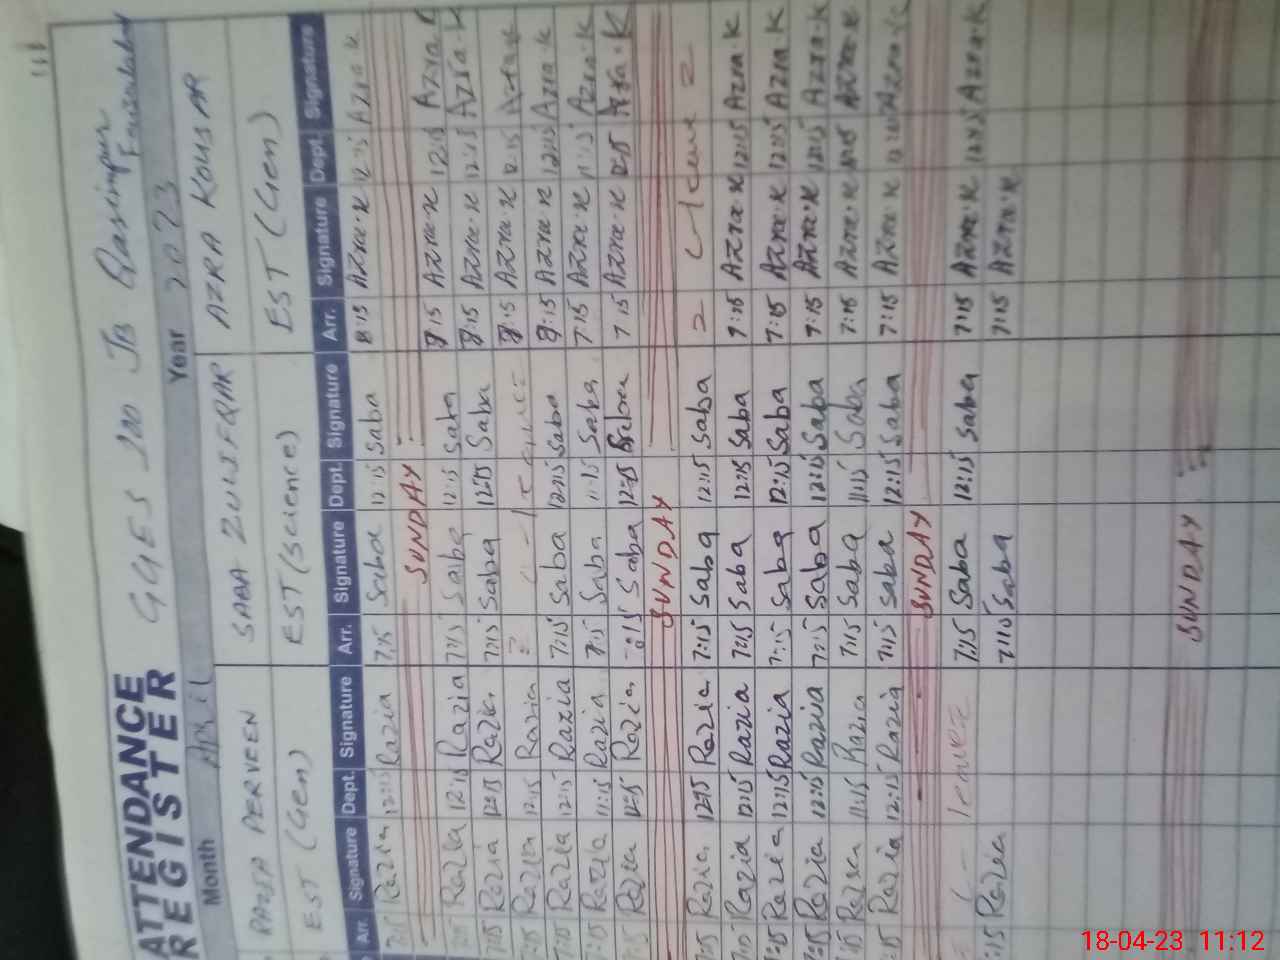 ATTENDANCE REGISTER
GGES 200 JB Rasinpur Faisalabad
Month April Year 2023
RAZIA PERVEEN SABA ZULIFQAR AZRA KOUSAR
EST (Gen) EST (Science) EST (Gen)
Arr. Signature Dept. Signature Arr. Signature Dept. Signature Arr. Signature Dept. Signature
7:15 Razia 12:15 Razia 7:15 Saba 12:15 Saba 8:15 Azra.K 12:15 Azra.K
SUNDAY
7:15 Razia 12:15 Razia 7:15 Saba 12:15 Saba 8:15 Azra.K 12:15 Azra.K
7:15 Razia 12:15 Razia 7:15 Saba 12:15 Saba 8:15 Azra.K 12:15 Azra.K
7:15 Razia 12:15 Razia Leave 8:15 Azra.K 12:15 Azra.K
7:15 Razia 12:15 Razia 7:15 Saba 12:15 Saba 8:15 Azra.K 12:15 Azra.K
7:15 Razia 11:15 Razia 7:15 Saba 11:15 Saba 7:15 Azra.K 11:15 Azra.K
7:15 Razia 12:15 Razia Saba 12:15 7:15 Azra.K 12:15 Azra.K
SUNDAY
7:15 Razia 12:15 Razia 7:15 Saba 12:15 Saba Leave
7:15 Razia 12:15 Razia 7:15 Saba 12:15 Saba 7:15 Azra.K 12:15 Azra.K
7:15 Razia 12:15 Razia 7:15 Saba 12:15 Saba 7:15 Azra.K 12:15 Azra.K
7:15 Razia 12:15 Razia 7:15 Saba 12:15 Saba 7:15 Azra.K 12:15 Azra.K
7:15 Razia 11:15 Razia 7:15 Saba 11:15 Saba 7:15 Azra.K Azra.K
7:15 Razia 12:15 Razia 7:15 Saba 12:15 Saba 7:15 Azra.K 12:15 Azra.K
SUNDAY
Leave 7:15 Saba 12:15 Saba 7:15 Azra.K 12:15 Azra.K
7:15 Razia 7:15 Saba 7:15 Azra.K
SUNDAY
18-04-23 11:12